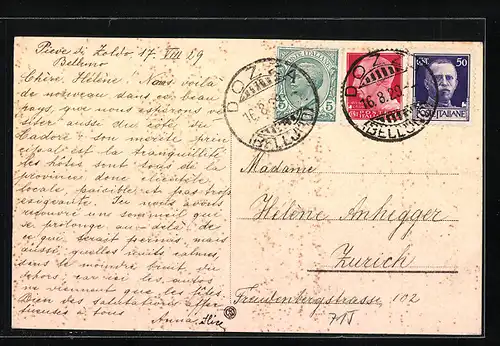 Pieve di Zoldo, 17 VIII 29
Belluno
Chère Hélène! Nous voilà
de nouveau dans ce beau
pays, que nous espérons vi
siter aussi du côté du
Cadore; son mérite prin
cipal est la tranquillité
les hôtes sont tous de la
province donc clientèle
locale, paisible et pas trop
exigeante. Ici nous avons
recouvré un sommeil qui
se prolonge au-delà de
ce qui serait permis, mais
aussi, quelles nuits calmes,
sans le moindre bruit du
dehors, car ici les autos
ne viennent que les fêtes.
Bien des salutations affec
tueuses à tous
Anna
5
POSTE ITALIANE
5
50
POSTE ITALIANE
DOZZA
16.8.29
(BELLUNO)
DOZZA
16.8.29
(BELLUNO)
Madame
Hélène Anhegger
Zurich
Freudenbergstrasse 102